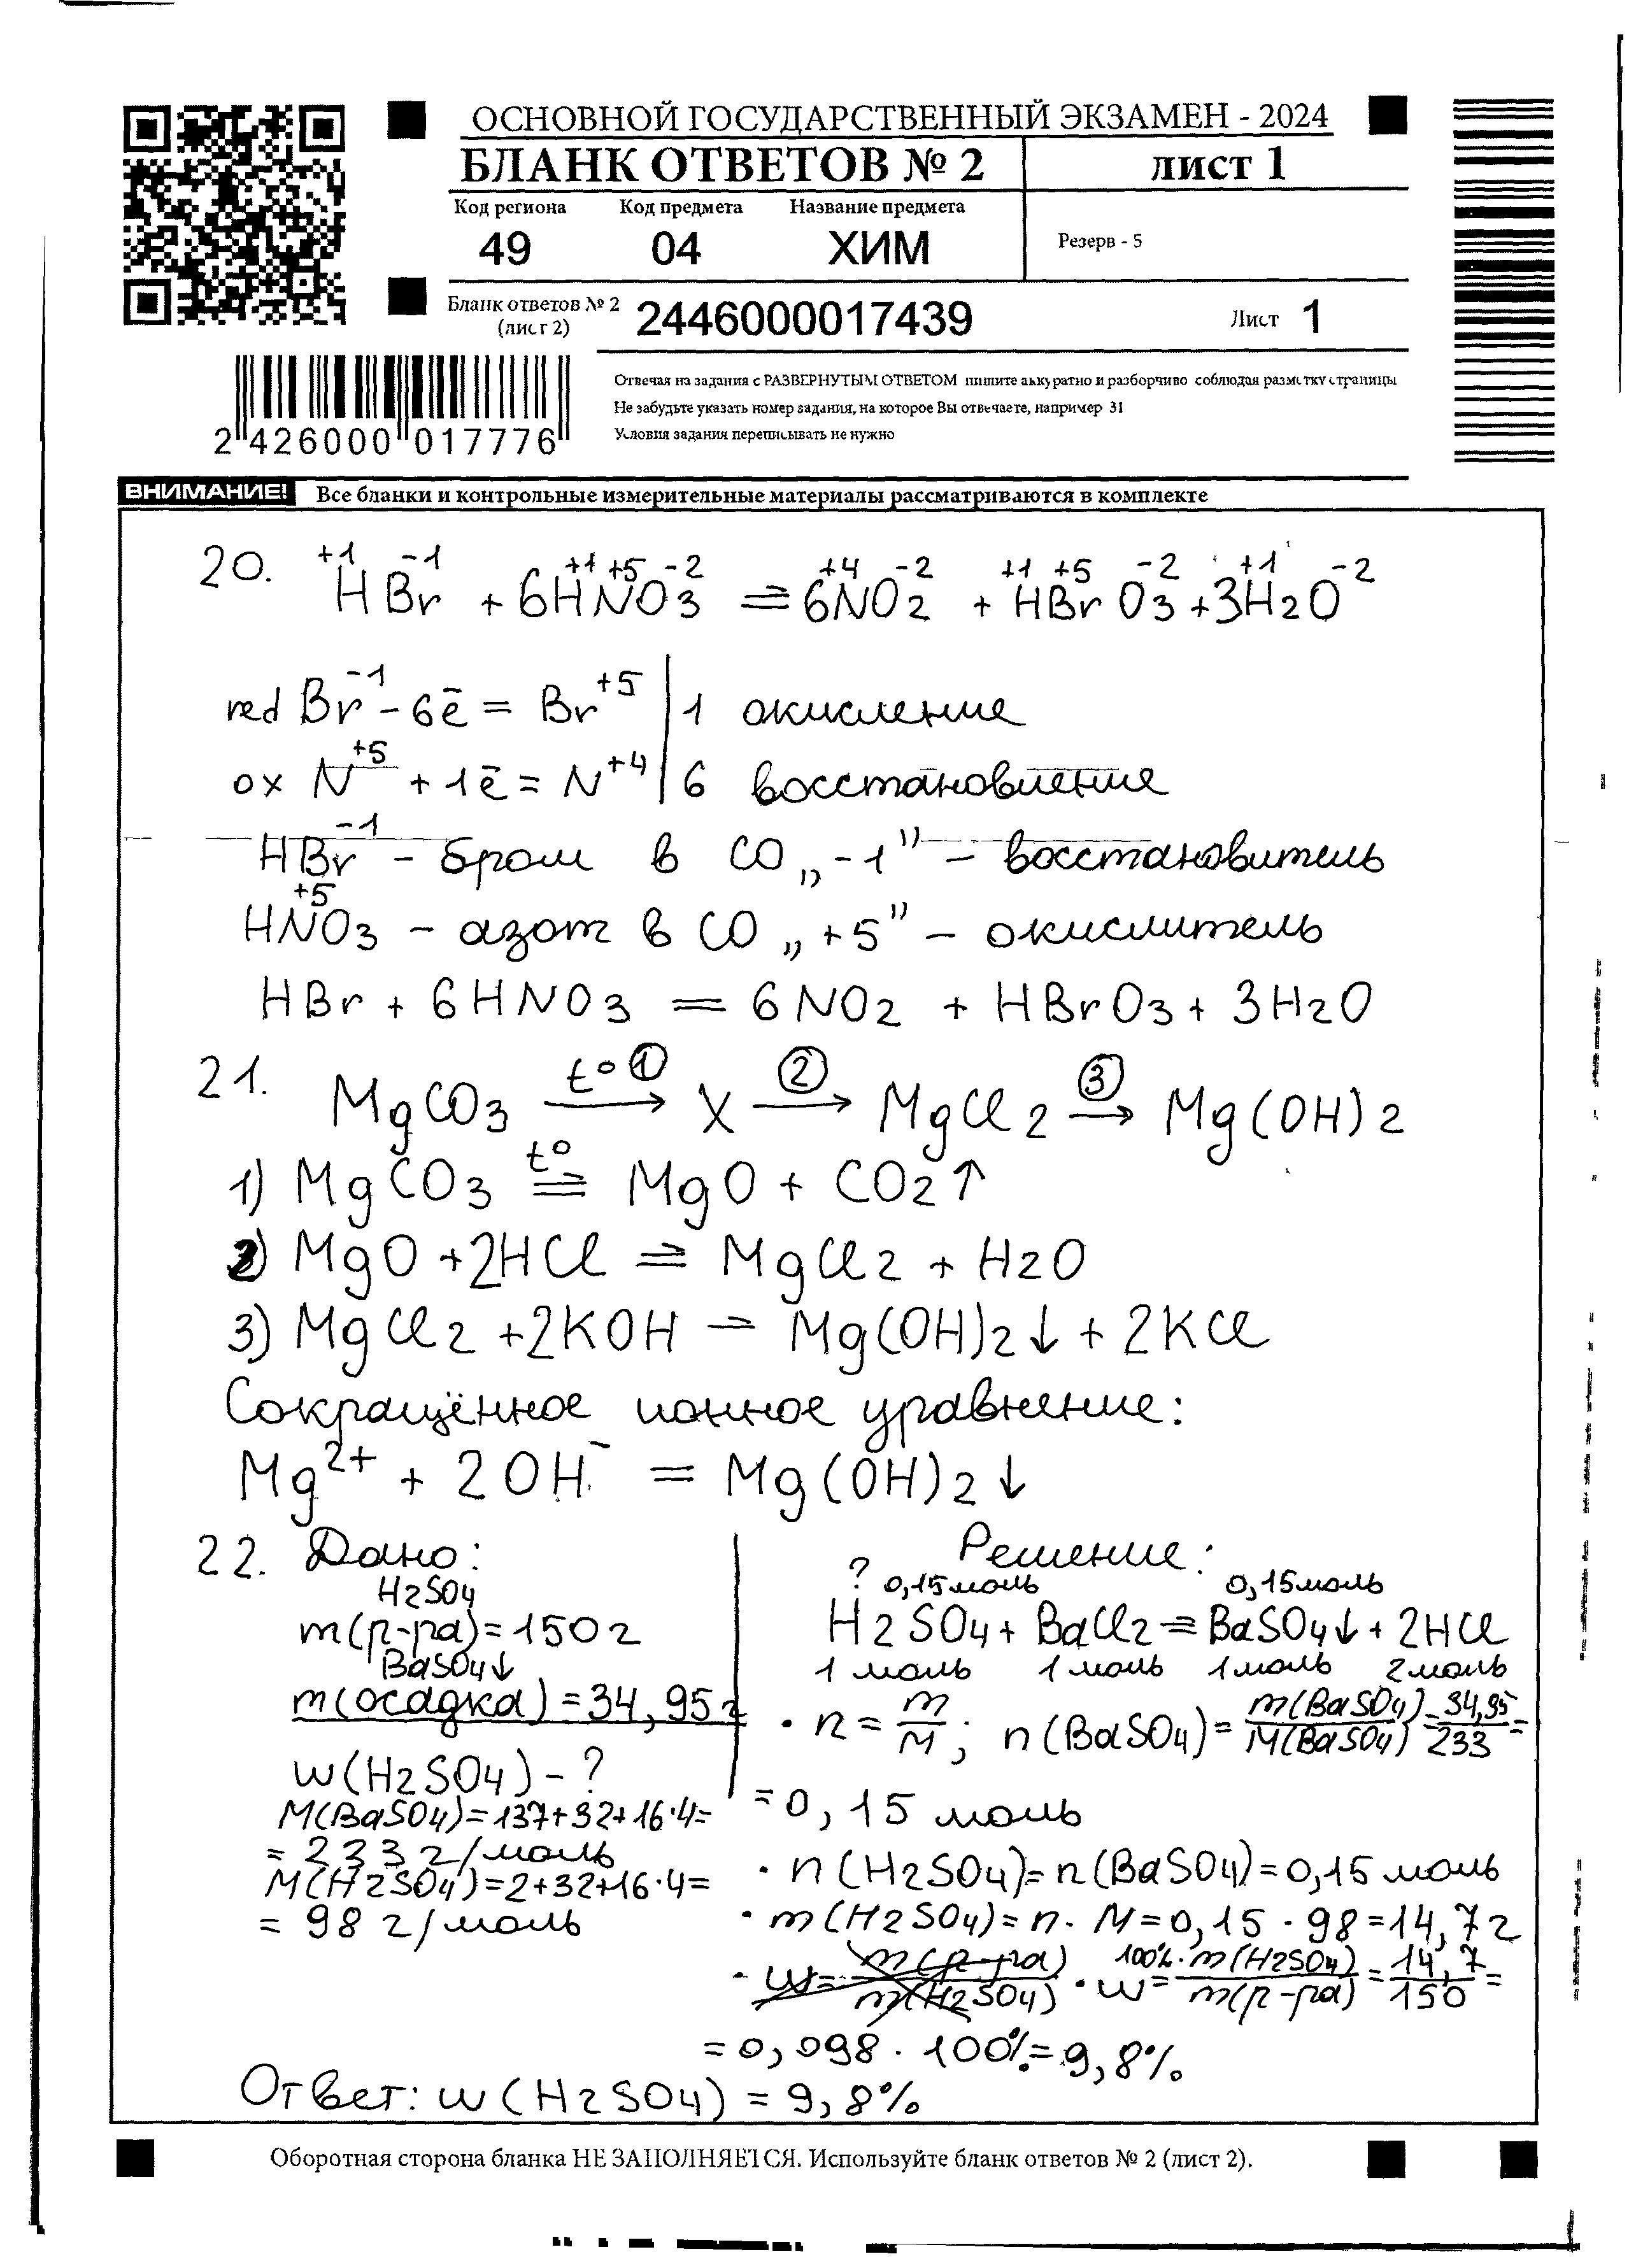 ОСНОВНОЙ ГОСУДАРСТВЕННЫЙ ЭКЗАМЕН - 2024
БЛАНК ОТВЕТОВ № 2
лист 1
Код региона Код предмета Название предмета
49 04 ХИМ
Резерв - 5
Бланк ответов № 2 (лист 2) 2446000017439
Лист 1
2 426000 017776
Отвечая на задания с РАЗВЕРНУТЫМ ОТВЕТОМ пишите аккуратно и разборчиво соблюдая разметку страницы
Не забудьте указать номер задания, на которое Вы отвечаете, например 31
Условия задания переписывать не нужно
ВНИМАНИЕ! Все бланки и контрольные измерительные материалы рассматриваются в комплекте
+1 -1 +1 +5 -2 +4 -2 +1 +5 -2 +1 -2
20. HBr + 6HNO3 = 6NO2 + HBrO3 + 3H2O
red Br⁻¹ - 6ē = Br⁺⁵ | 1 окисление
ox N⁺⁵ + 1ē = N⁺⁴ | 6 восстановление
HBr⁻¹ - бром в СО „-1” - восстановитель
HN⁺⁵O3 - азот в СО „+5” - окислитель
HBr + 6HNO3 = 6NO2 + HBrO3 + 3H2O
21. MgCO3 t° ①→ X ②→ MgCl2 ③→ Mg(OH)2
1) MgCO3 t°= MgO + CO2↑
2) MgO + 2HCl = MgCl2 + H2O
3) MgCl2 + 2KOH = Mg(OH)2↓ + 2KCl
Сокращённое ионное уравнение:
Mg²⁺ + 2OH⁻ = Mg(OH)2↓
22. Дано:
H2SO4
m(р-ра) = 150 г
BaSO4↓
m(осадка) = 34,95 г
w(H2SO4) - ?
M(BaSO4) = 137+32+16·4=
= 233 г/моль
M(H2SO4) = 2+32+16·4=
= 98 г/моль
Решение:
? 0,15 моль 0,15 моль
H2SO4 + BaCl2 = BaSO4↓ + 2HCl
1 моль 1 моль 1 моль 2 моль
· n = m/M; n(BaSO4) = m(BaSO4)/M(BaSO4) = 34,95/233 =
= 0,15 моль
· n(H2SO4) = n(BaSO4) = 0,15 моль
· m(H2SO4) = n · M = 0,15 · 98 = 14,7 г
· w = m(р-ра)/m(H2SO4) · w = 100% · m(H2SO4)/m(р-ра) = 14,7/150 =
= 0,098 · 100% = 9,8%
Ответ: w(H2SO4) = 9,8%
Оборотная сторона бланка НЕ ЗАПОЛНЯЕТСЯ. Используйте бланк ответов № 2 (лист 2).